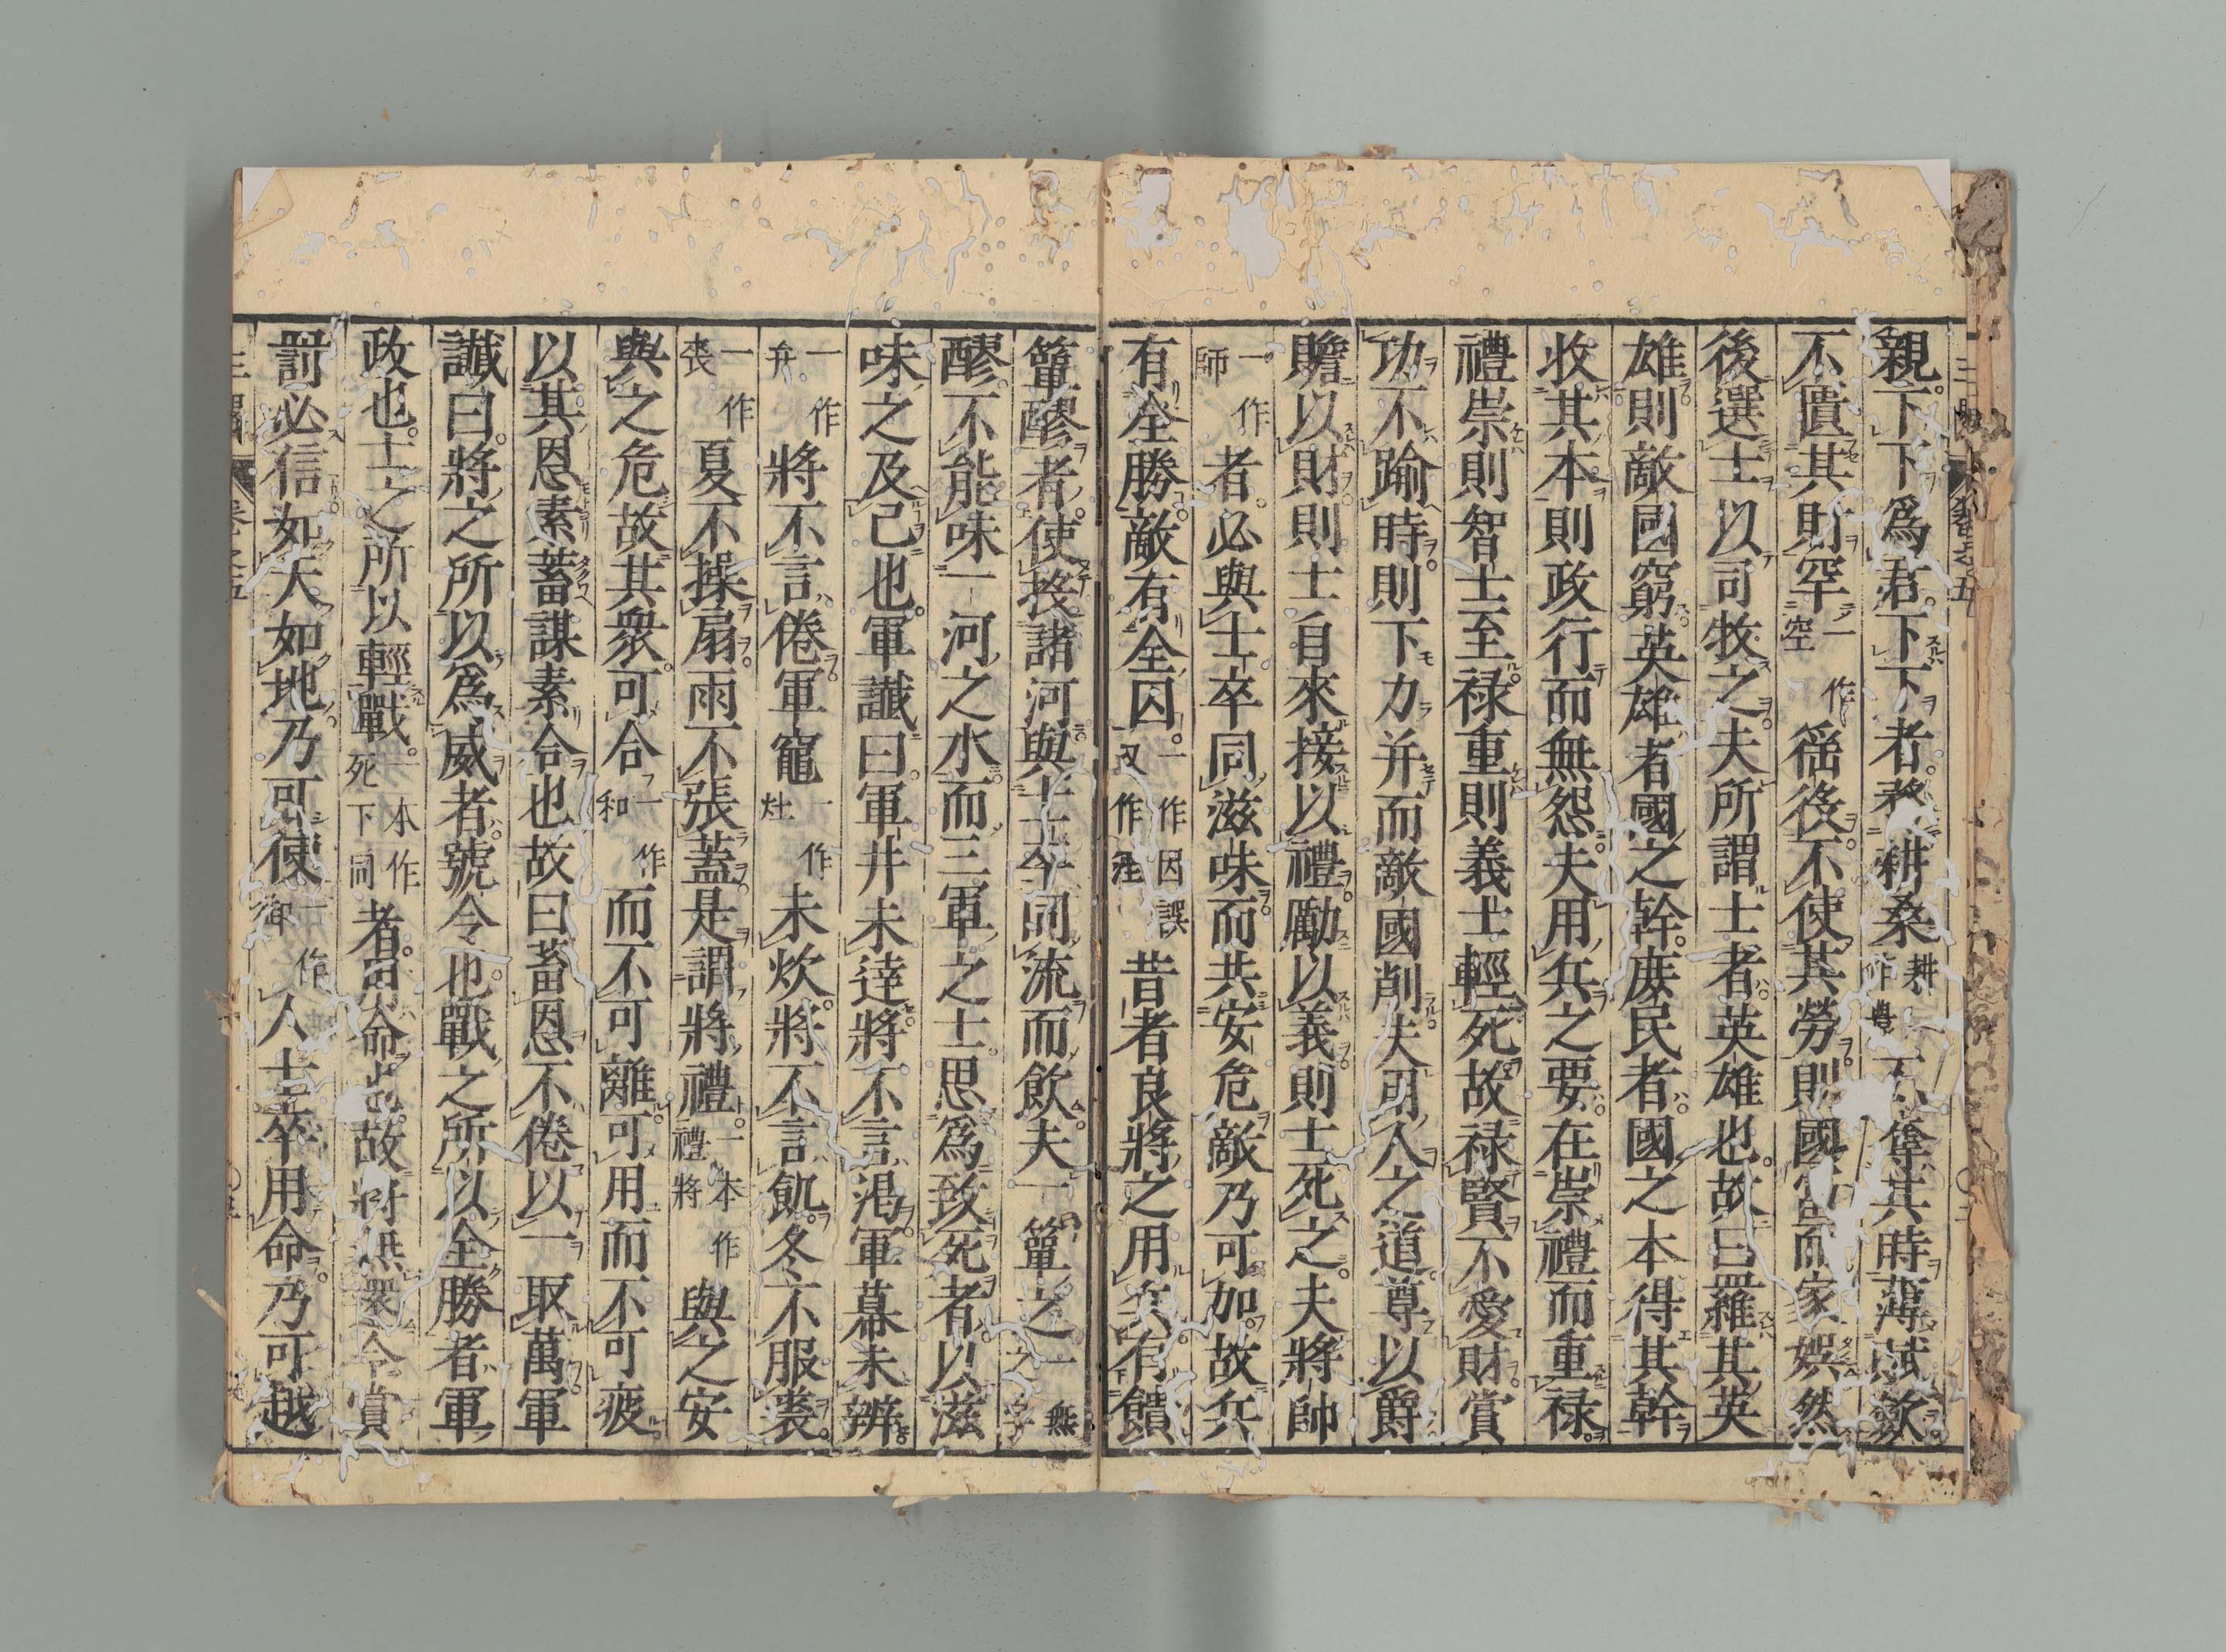 親下下爲君下下者務耕桑耕作農不奪其時薄賦歛
不匱其財罕一作空徭役不使其勞則國富而家娯然
後選士以司牧之夫所謂士者英雄也故曰羅其英
雄則敵國窮英雄者國之幹庻民者國之本得其幹
收其本則政行而無怨夫用兵之要在崇禮而重禄
禮崇則智士至禄重則義士輕死故禄賢不愛財賞
功不踰時則下力并而敵國削夫用人之道尊以爵
贍以財則士自來接以禮勵以義則士死之夫將帥
一作師者必與士卒同滋味而共安危敵乃可加故兵
有全勝敵有全囚一作因誤又作湮昔者良將之用兵有饋
簞醪者使投諸河與士卒同流而飲夫一簞之一無之字
醪不能味一河之水而三軍之士思爲致死者以滋
味之及己也軍讖曰軍井未達將不言渇軍幕未辨
一作弁將不言倦軍竈一作灶未炊將不言飢冬不服裘
一作裘夏不操扇雨不張蓋是謂將禮一本作禮將與之安
與之危故其衆可合一作和而不可離可用而不可疲
以其恩素蓄謀素合也故曰蓄恩不倦以一取萬軍
讖曰將之所以爲威者號令也戰之所以全勝者軍
政也士之所以輕戰一本作死下同者用命也故將無還令賞
罰必信如天如地乃可使一作御人士卒用命乃可越